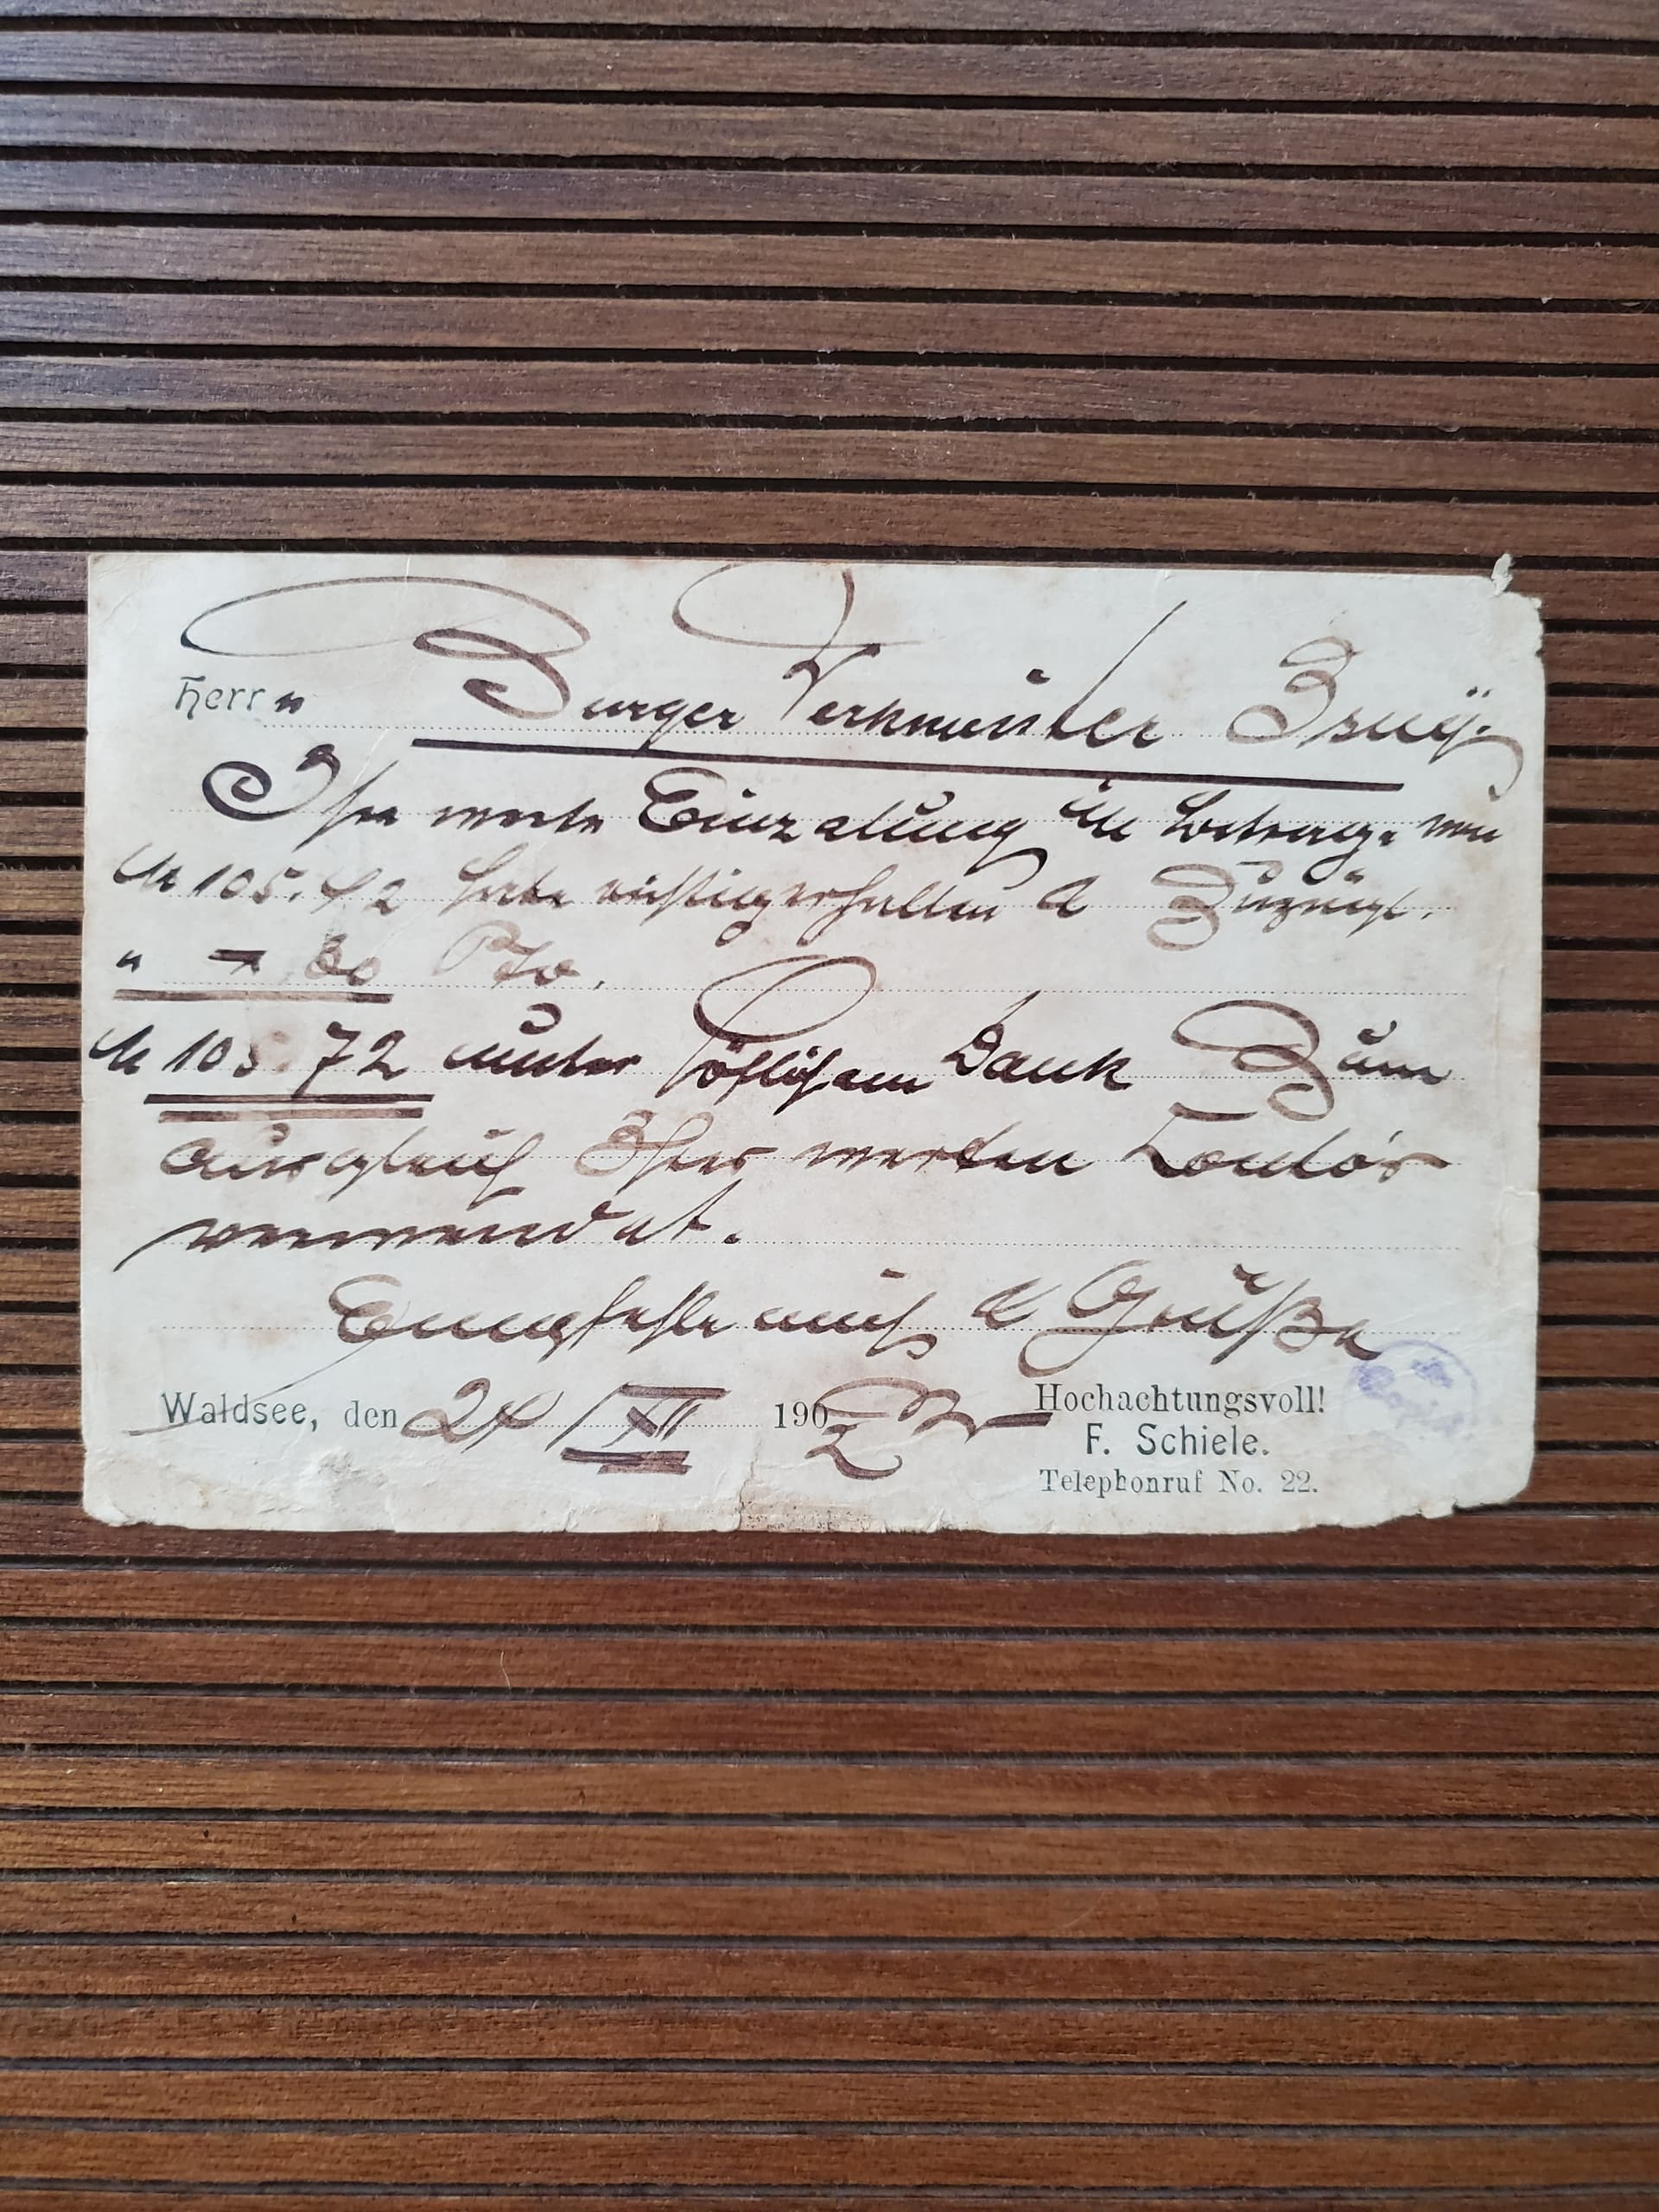 Herrn Burger Werkmeister
Ihre werte Einzalung im Betrage von
M 105.42 habe richtig erhalten & Zuzügl.
" —.30 Pto.
M 105.72 unter höflichem Dank Zum
Ausgleich Ihres werten Conto's
verwendet.
Empfehle mich & Grüße
Waldsee, den 24/XII 1902 Hochachtungsvoll!
F. Schiele.
Telephonruf No. 22.